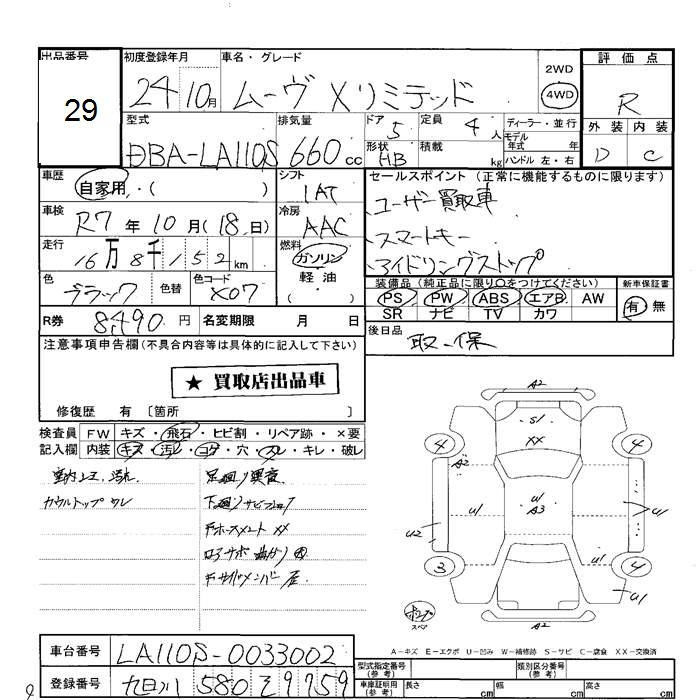 出品番号
29
初度登録年月
24 10月
車名・グレード
ムーヴ Xリミテッド
2WD
4WD
評価点
R
外装 内装
D C
型式
DBA-LA110S
排気量
660cc
ドア
5
定員
4人
形状
HB
積載
kg
ディーラー・並行
モデル
年式 年
ハンドル 左・右
車歴
自家用・( )
シフト
IAT
車検
R7年10月(18日)
冷房
AAC
走行
16万8千152km
燃料
ガソリン
軽油
( )
色
ブラック
色替
色コード
X07
R券
8,490円
名変期限 月 日
セールスポイント(正常に機能するものに限ります)
ユーザー買取車
スマートキー
アイドリングストップ
装備品(純正品に限り○をつけてください)
PS PW ABS エアB AW
SR ナビ TV カワ
新車保証書
有 無
後日品
取・保
注意事項申告欄(不具合内容等は具体的に記入して下さい)
★ 買取店出品車
修復歴 有〔箇所 〕
検査員 FW キズ・飛石・ヒビ割・リペア跡・×要
記入欄 内装 キズ・汚レ・コゲ・穴・スレ・キレ・破レ
カウルトップ ワレ
足廻り異音
A2
S1
XX
4
4
A2
U1
U1
A3
U1
U2
U1
3
4
A2
スペア
A-キズ E-エクボ U-凹み W-補修跡 S-サビ C-腐食 XX-交換済
車台番号
LA110S-0033002
登録番号
型式指定番号
(参考)
類別区分番号
(参考)
車庫証明用
(参考)
長さ cm
幅 cm
高さ cm